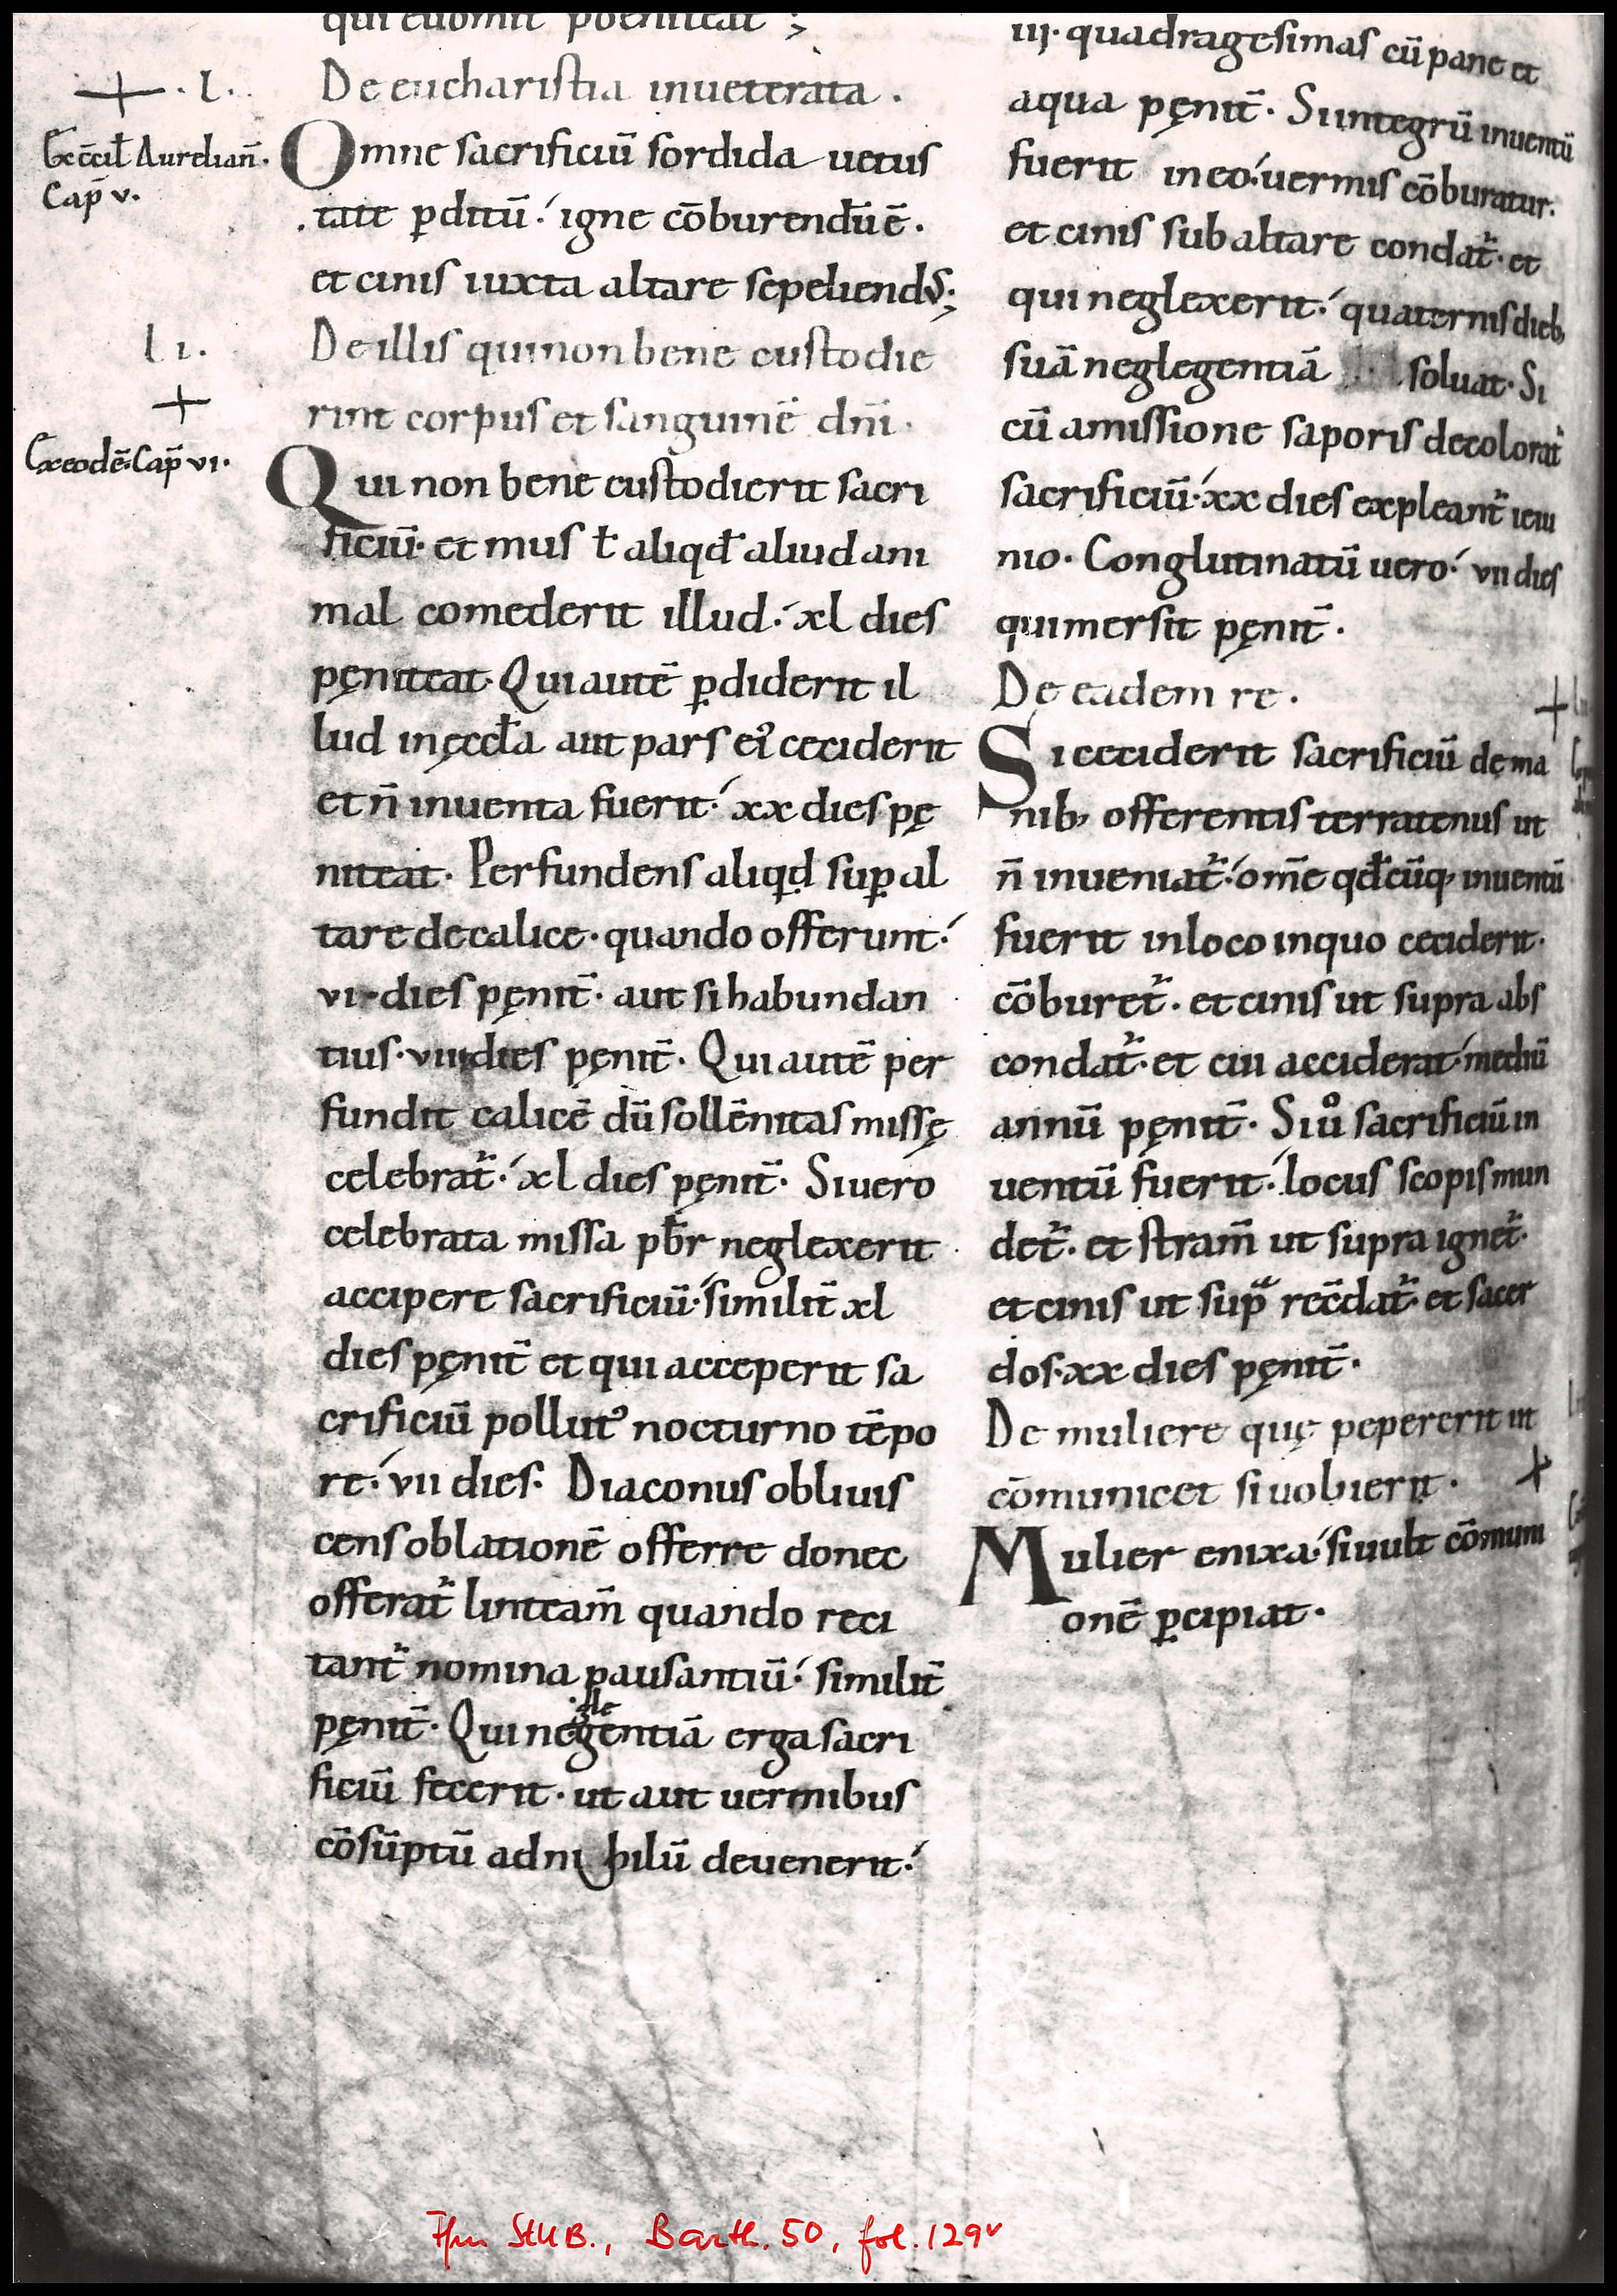 qui euomit poeniteat ;
De eucharistia inueterata .
Omne sacrificiū sordida uetus
tate ꝑditū. igne cōburendū ē .
et cinis iuxta altare sepeliendꝰ;
De illis qui non bene custodie
rint corpus et sanguinē dn̄i .
Qui non bene custodierit sacri
ficiū. et mus ł aliqđ aliud ani
mal comederit illud. xl dies
pęniteat. Qui autē ꝑdiderit il
lud in ęccła aut pars eiꝰ ceciderit
et n̄ inuenta fuerit. xx dies pę
niteat. Perfundens aliqd suꝑ al
tare de calice. quando offerunt.
vi dies pęnit̄. aut si habundan
tius. vii dies pęnit̄. Qui autē per
fundit calicē dū sollēnitas missę
celebrat᷑. xl dies pęnit̄. Si uero
celebrata missa pbr̄ neglexerit
accipere sacrificiū. similit̄ xl
dies pęnit̄ et qui acceperit sa
crificiū pollutꝰ nocturno tēpo
re. vii dies. Diaconus obliuis
cens oblationē offerre donec
offerat᷑ linteam̄ quando reci
tant᷑ nomina pausantiū. similit̄
pęnit̄. Qui neglegentiā erga sacri
ficiū fecerit. ut aut uermibus
cōsūptū ad nihilū deuenerit.
. l .
Ex c̄cil Aurelian̄.
Cap̄ v.
li.
Ex eodē. Cap̄ vi.
iij. quadragesimas cū pane et
aqua pęnit̄. Si integrū inuentū
fuerit in eo. uermis cōburatur.
et cinis sub altare condat᷑. et
qui neglexerit. quaternis dieb;
suā neglegentiā soluat. Si
cū amissione saporis decolorat᷑
sacrificiū. xx dies expleant᷑ ieiu
nio. Conglutinatū uero. vii dies
qui mersit pęnit̄.
De eadem re .
Si ceciderit sacrificiū de ma
nib; offerentis terratenus ut
n̄ inueniat᷑. om̄e qđcūq; inuentū
fuerit in loco in quo ceciderit.
cōburet᷑. et cinis ut supra abs
condat᷑. et cui acciderat. mediū
annū pęnit̄. Si uͦ sacrificiū in
uentū fuerit. locus scopis mun
det᷑. et stram̄ ut supra ignet᷑.
et cinis ut sup̄ rec̄dat᷑. et sacer
dos. xx dies pęnit̄.
De muliere quę pepererit ut
cōmunicet si uoluerit .
Mulier enixa. si uult cōmuni
onē ꝑcipiat .
Hbn StUB., Barth. 50, fol. 129v